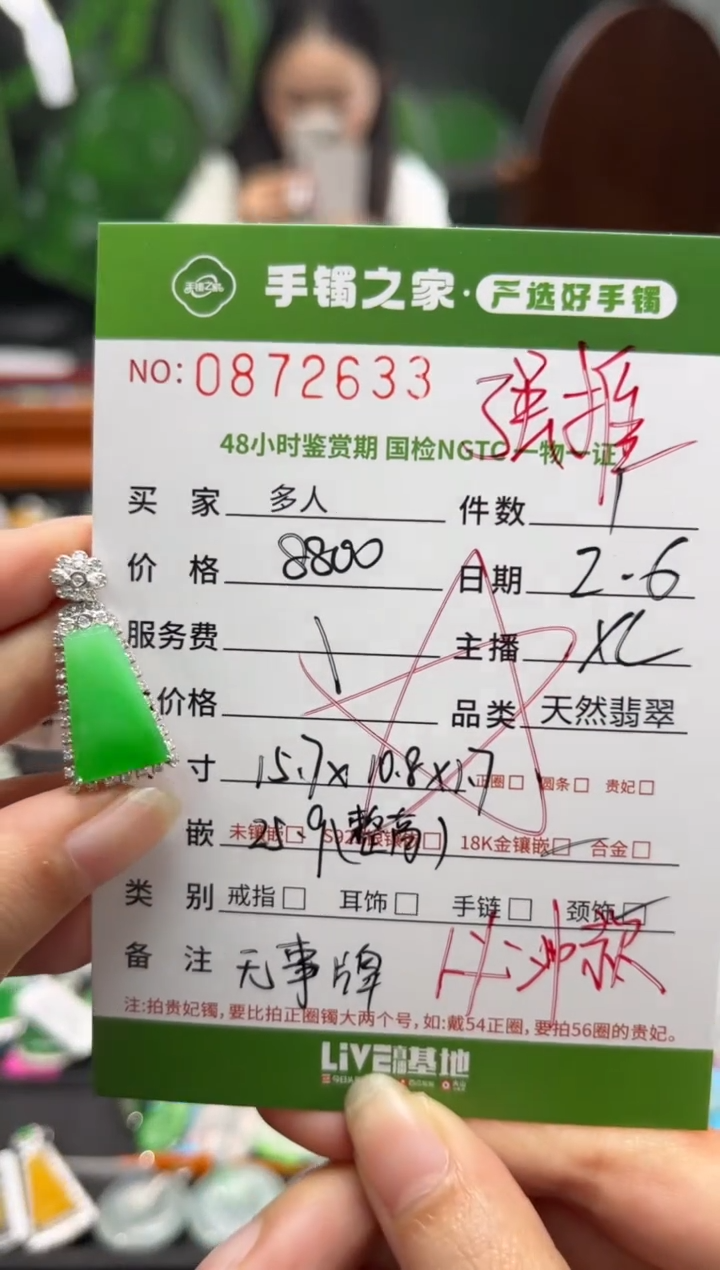 手镯之家·严选好手镯
NO:0872633
强推
48小时鉴赏期 国检NGTC 一物一证
买 家 多人 件数 1
价 格 8800 日期 2-6
服务费 主播 XL
价格 品类 天然翡翠
寸 15.7x10.8x2.7 正圈□ 圆条□ 贵妃□
嵌 未镶嵌□ 25.9(整高) 18K金镶嵌□ 合金□
类 别 戒指□ 耳饰□ 手链□ 颈饰□
备 注 无事牌
注:拍贵妃镯,要比拍正圈镯大两个号,如:戴54正圈,要拍56圈的贵妃。
LIVE直播基地